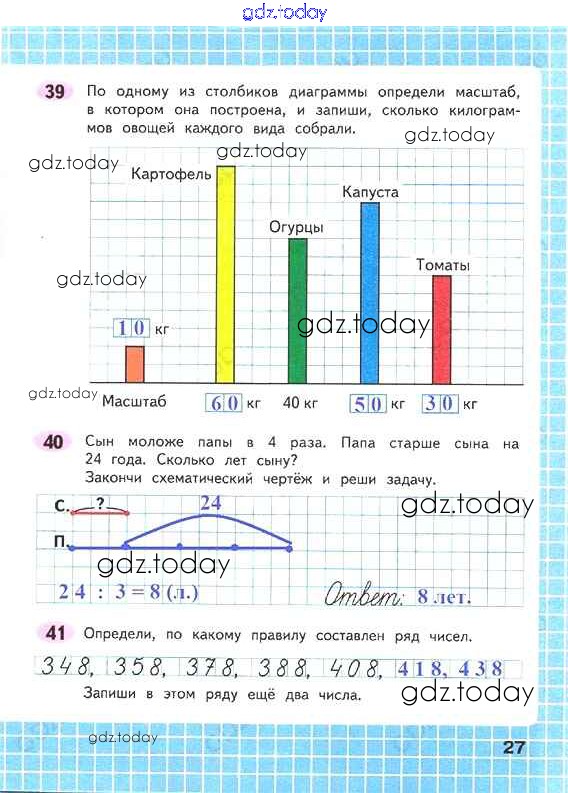 gdz.today
39 По одному из столбиков диаграммы определи масштаб,
в котором она построена, и запиши, сколько килограм-
мов овощей каждого вида собрали.
gdz.today
gdz.today
gdz.today
Картофель
Капуста
Огурцы
Томаты
gdz.today
10 кг
gdz.today
gdz.today
Масштаб 60 кг 40 кг 50 кг 30 кг
40 Сын моложе папы в 4 раза. Папа старше сына на
24 года. Сколько лет сыну?
Закончи схематический чертёж и реши задачу.
С. ? 24
gdz.today
П.
gdz.today
24 : 3 = 8 (л.) Ответ: 8 лет.
41 Определи, по какому правилу составлен ряд чисел.
348, 358, 378, 388, 408, 418, 438
Запиши в этом ряду ещё два числа.
gdz.today
gdz.today
27